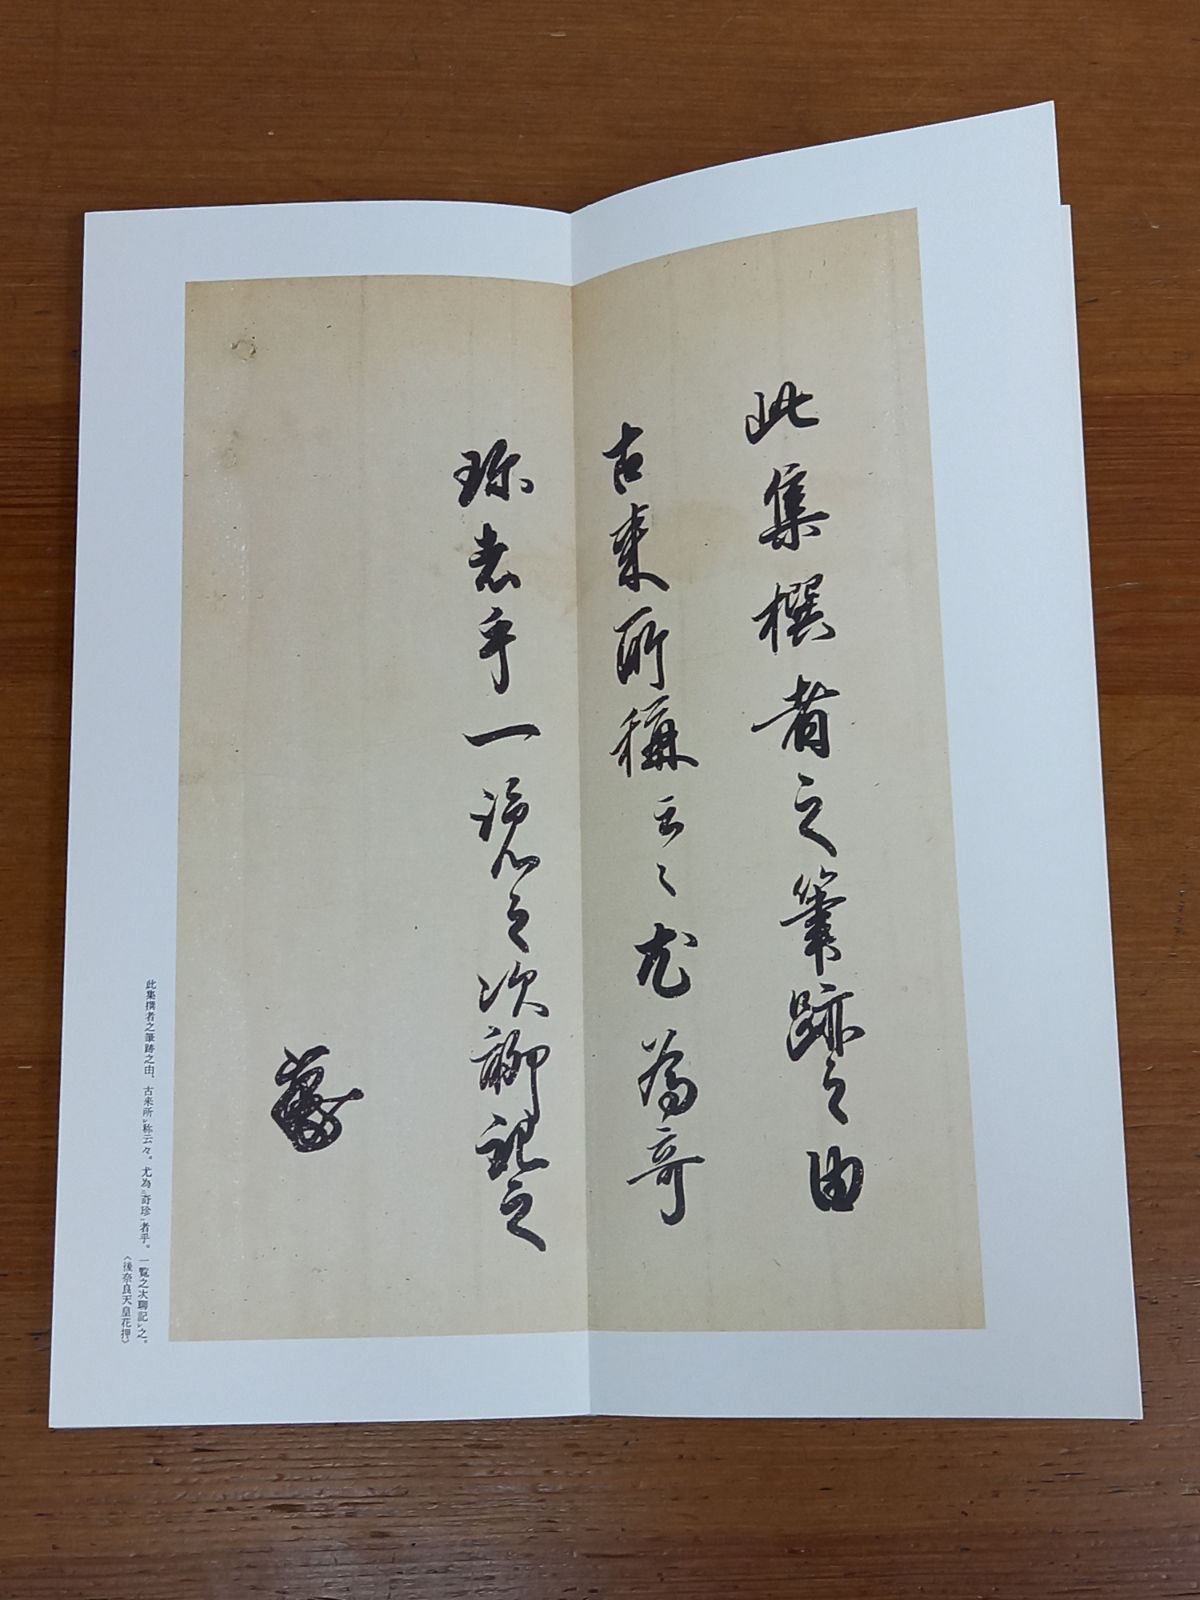 此集撰者之筆跡之由
古来所称云々尤為奇
珍者乎一覧之次聊記之
此集撰者之筆跡之由、古来所レ称云々。尤為二奇珍一者乎。一覧之次聊記レ之。
（後奈良天皇花押）